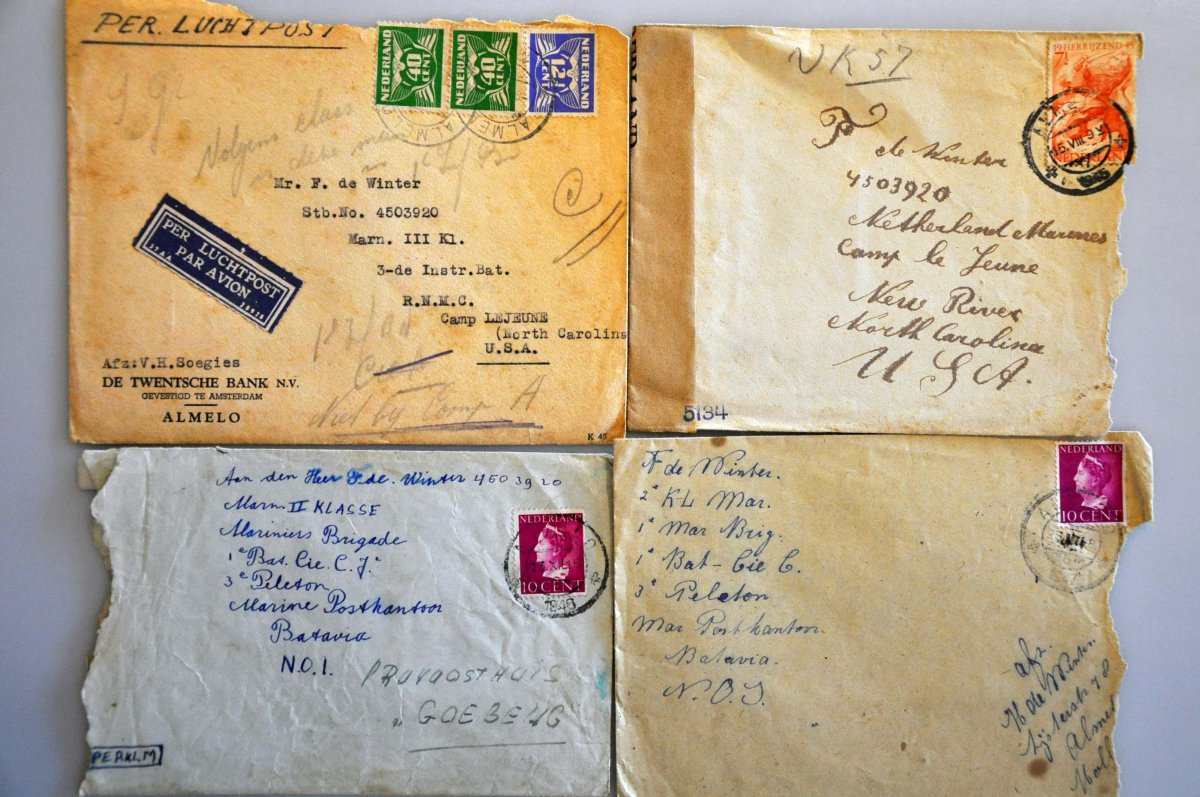 PER. LUCHTPOST
NEDERLAND
40 CENT
NEDERLAND
40 CENT
NEDERLAND
12½ CENT
ALMELO
Volgens class
Mr. F. de Winter
Stb.No. 4503920
Marn. III Kl.
3-de Instr.Bat.
R.N.M.C.
Camp LEJEUNE
(North Carolina
U.S.A.
PER LUCHTPOST
PAR AVION
Afz:V.H.Soegies
DE TWENTSCHE BANK N.V.
GEVESTIGD TE AMSTERDAM
ALMELO
Niet by Comp A
K 45
NK 57
19 HERRIJZEND 45
7½
NEDERLAND
15.VIII
1945
F de Winter
4503920
Netherland Marines
Camp le Jeune
New River
North Carolina
U S A.
5134
Aan den Heer F. de. Winter 4503920
Marn. II KLASSE
Mariniers Brigade
1e Bat. Cie. C. J.
3e Peleton
Marine Postkantoor
Batavia
N.O.I.
PROVOOSTHUIS
GOEBENG
PER K.L.M
NEDERLAND
10 CENT
1946
F de Winter.
2e KL Mar.
1e Mar Brig.
1e Bat - Cie C.
3e Peleton
Mar Postkantoor.
Batavia.
N.O.I.
NEDERLAND
10 CENT
afz.
M de Winter
Almel
Holl